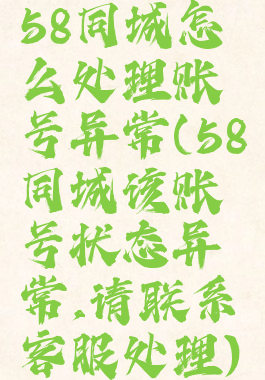 58同城怎
么处理账
号异常(58
同城该账
号状态异
常,请联系
客服处理)